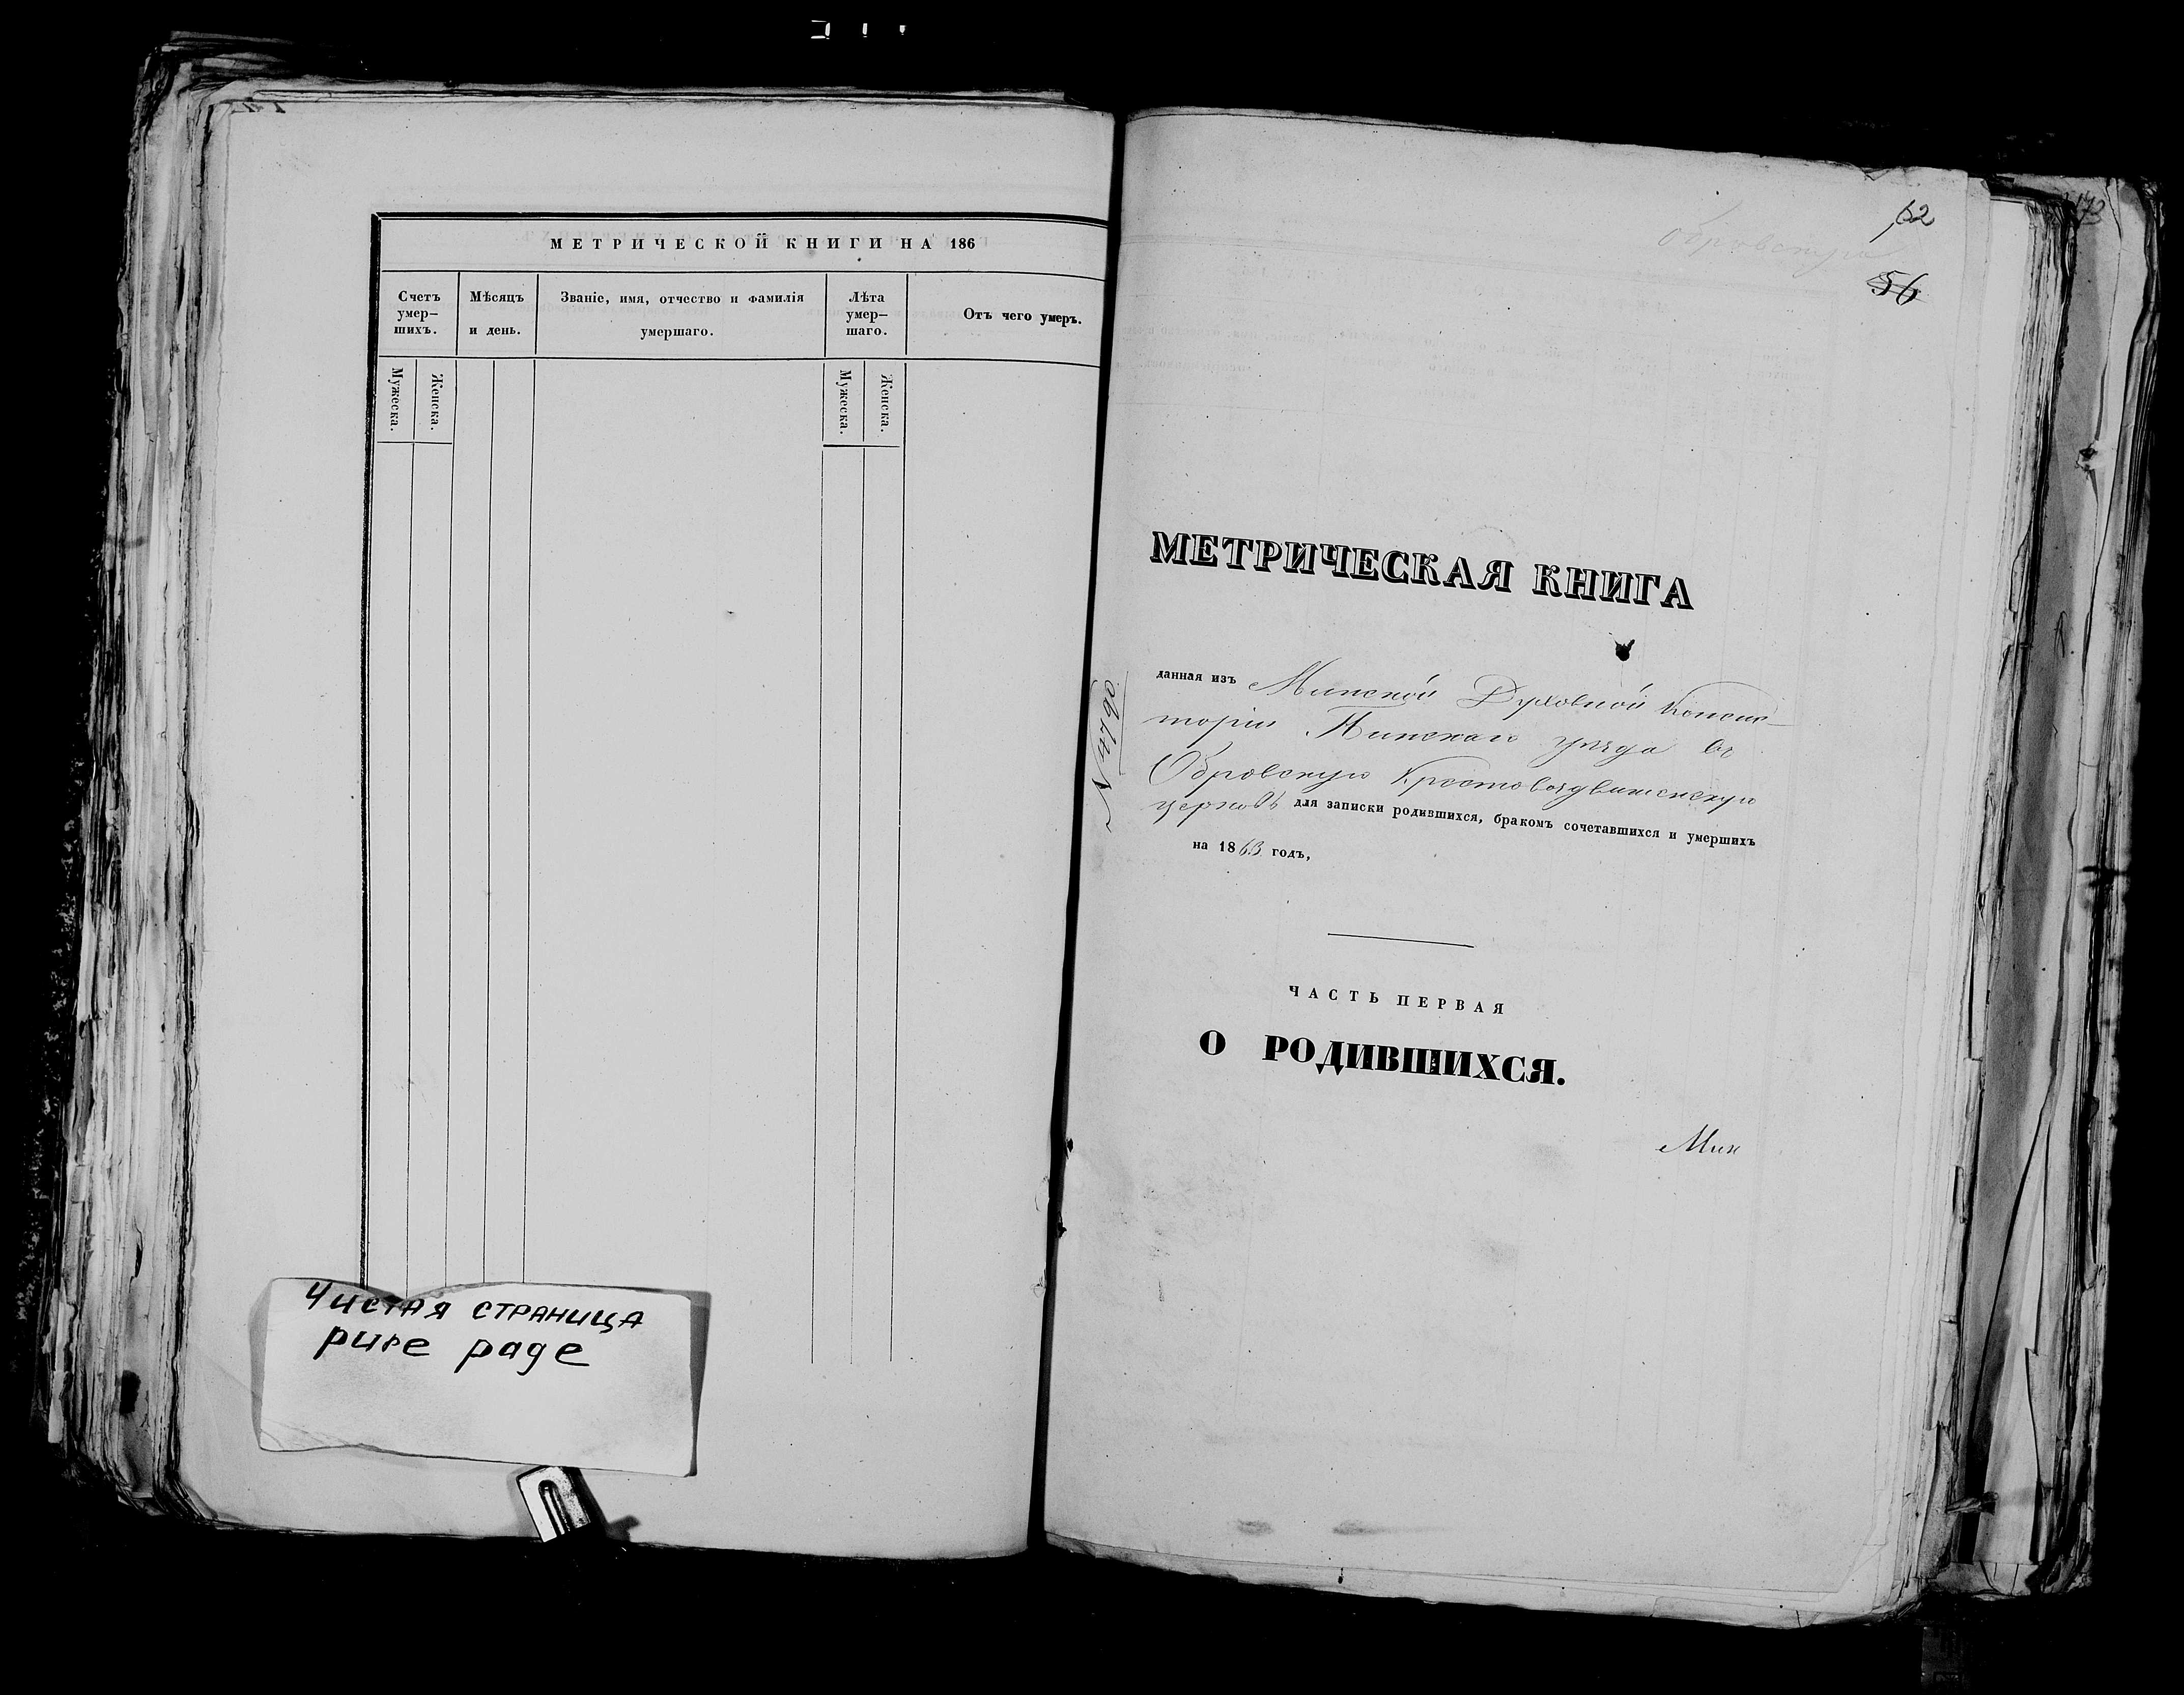 МЕТРИЧЕСКОЙ КНИГИ НА 186
Счетъ умер-
шихъ.
Мѣсяцъ
и день.
Званіе, имя, отчество и фамилія
умершаго.
Лѣта
умер-
шаго.
Отъ чего умеръ.
Мужеска.
Женска.
Мужеска.
Женска.
Чистая страница
pure page
62
Обровскую
56
МЕТРИЧЕСКАЯ КНИГА
данная изъ Минской Духовной Консис-
торіи Пинскаго уѣзда въ
Обровскую Крестовоздвиженскую
церковь для записки родившихся, бракомъ сочетавшихся и умершихъ
на 1863 годъ,
ЧАСТЬ ПЕРВАЯ
О РОДИВШИХСЯ.
Мин